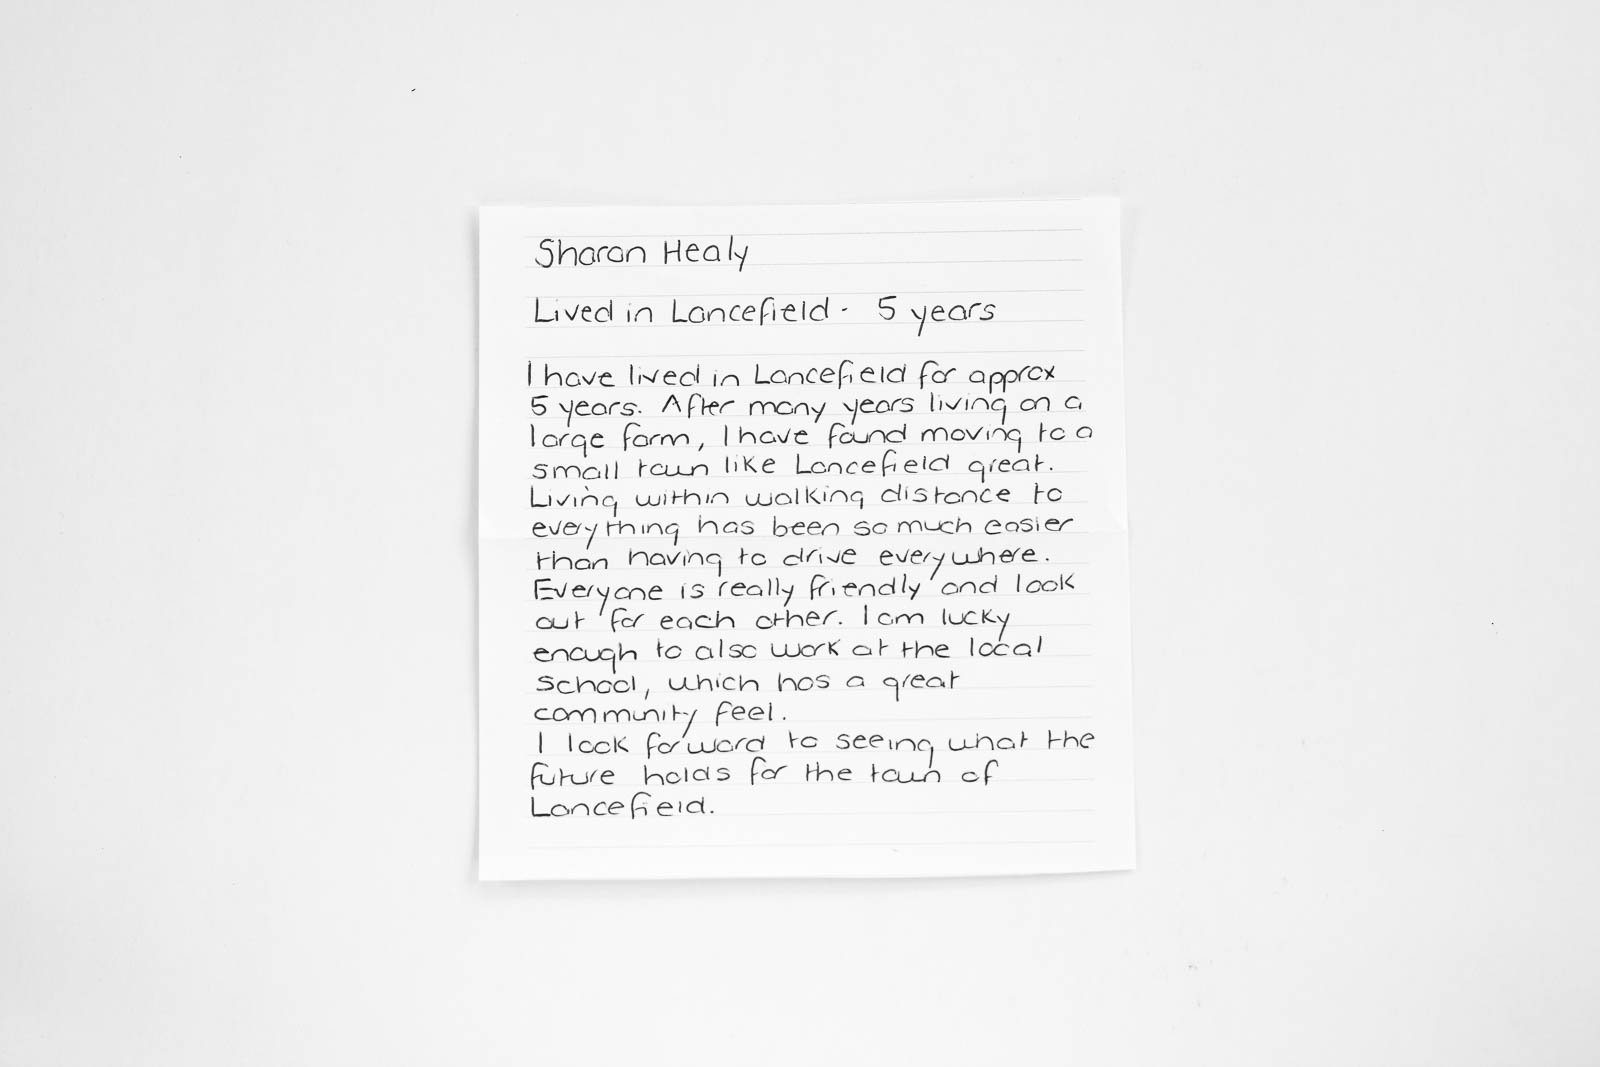 Sharon Healy
Lived in Lancefield - 5 years
I have lived in Lancefield for approx
5 years. After many years living on a
large farm, I have found moving to a
small town like Lancefield great.
Living within walking distance to
everything has been so much easier
than having to drive everywhere.
Everyone is really friendly and look
out for each other. I am lucky
enough to also work at the local
school, which has a great
community feel.
I look forward to seeing what the
future holds for the town of
Lancefield.